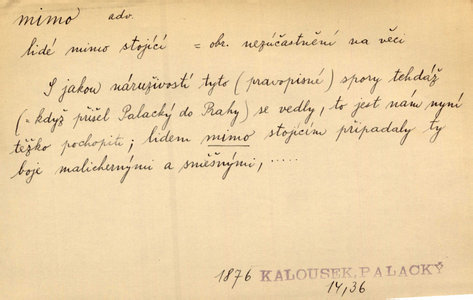 mimo adv.
lidé mimo stojící = obr. nezúčastnění na věci
S jakou náruživostí tyto (pravopisné) spory tehdáž
(= když přišel Palacký do Prahy) se vedly, to jest nám nyní
těžko pochopiti; lidem mimo stojícím připadaly ty
boje malichernými a směšnými, .....
1876 KALOUSEK, PALACKÝ
14,36